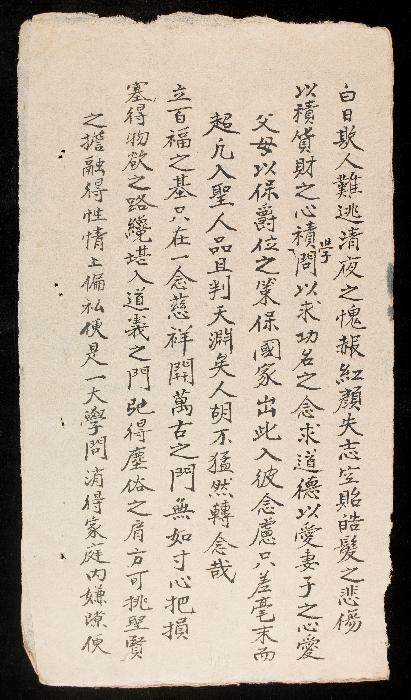 白日欺人難逃清夜之愧赧紅顏失志空貽皓髮之悲傷
以積貨財之心積學問以求功名之念求道德以愛妻子之心愛
父母以保爵位之策保國家出此入彼念慮只差毫末而
超凡入聖人品且判天淵矣人胡不猛然轉念哉
立百福之基只在一念慈祥開萬古之門無如寸心把損
塞得物欲之路纔堪入道義之門弛得塵俗之肩方可挑聖賢
之擔融得性情上偏私便是一大學問消得家庭內嫌隙便